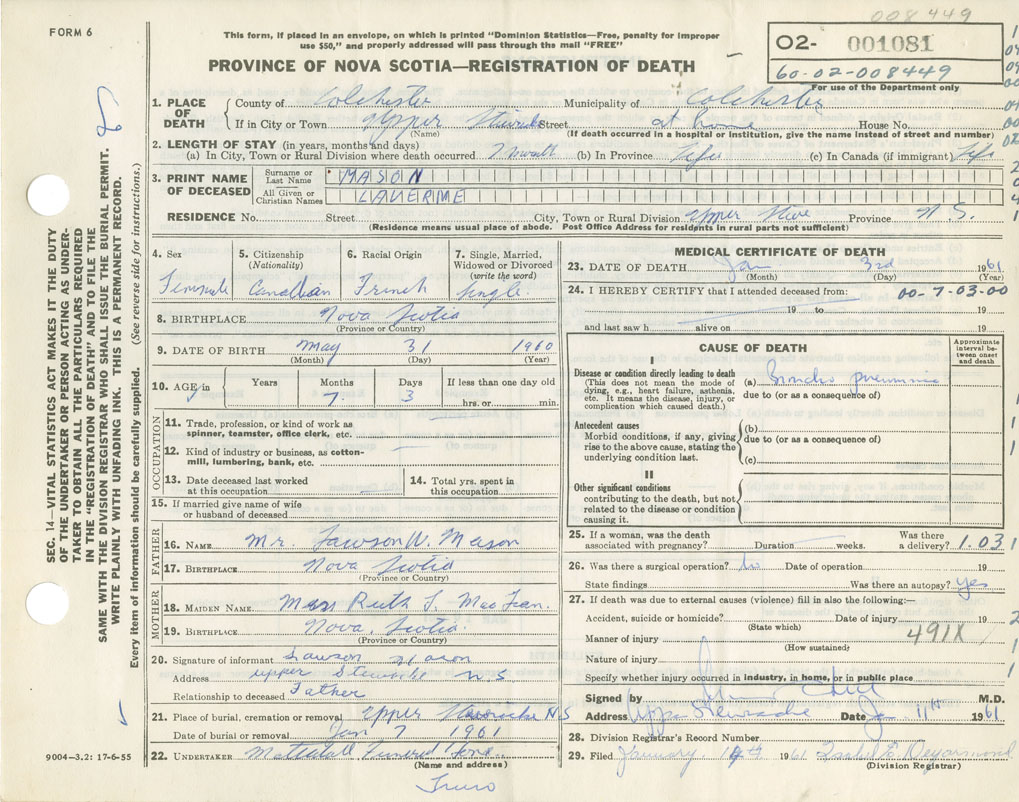 008449
FORM 6
This form, if placed in an envelope, on which is printed "Dominion Statistics—Free, penalty for improper
use $50," and properly addressed will pass through the mail "FREE"
02- 001081
60-02-008449
For use of the Department only
PROVINCE OF NOVA SCOTIA—REGISTRATION OF DEATH
SEC. 14—VITAL STATISTICS ACT MAKES IT THE DUTY
OF THE UNDERTAKER OR PERSON ACTING AS UNDER-
TAKER TO OBTAIN ALL THE PARTICULARS REQUIRED
IN THE "REGISTRATION OF DEATH" AND TO FILE THE
SAME WITH THE DIVISION REGISTRAR WHO SHALL ISSUE THE BURIAL PERMIT.
WRITE PLAINLY WITH UNFADING INK. THIS IS A PERMANENT RECORD.
Every item of information should be carefully supplied. (See reverse side for instructions.)
1. PLACE OF DEATH
County of Colchester Municipality of Colchester
If in City or Town Upper Street at home House No.
(Name) (If death occurred in a hospital or institution, give the name instead of street and number)
2. LENGTH OF STAY (in years, months and days)
(a) In City, Town or Rural Division where death occurred (b) In Province Life (c) In Canada (if immigrant) Life
3. PRINT NAME OF DECEASED
Surname or Last Name MASON
All Given or Christian Names
RESIDENCE No. Street City, Town or Rural Division Upper Province N.S.
(Residence means usual place of abode. Post Office Address for residents in rural parts not sufficient)
4. Sex
Female
5. Citizenship (Nationality)
Canadian
6. Racial Origin
French
7. Single, Married, Widowed or Divorced (write the word)
Single
8. BIRTHPLACE Nova Scotia
(Province or Country)
9. DATE OF BIRTH May 31 1960
(Month) (Day) (Year)
10. AGE in Years Months Days If less than one day old
7 3 hrs. or min.
OCCUPATION
11. Trade, profession, or kind of work as
spinner, teamster, office clerk, etc.
12. Kind of industry or business, as cotton-
mill, lumbering, bank, etc.
13. Date deceased last worked at this occupation
14. Total yrs. spent in this occupation
15. If married give name of wife
or husband of deceased
FATHER
16. NAME Mr. Lawson W. Mason
17. BIRTHPLACE Nova Scotia
(Province or Country)
MOTHER
18. MAIDEN NAME Ruth
19. BIRTHPLACE Nova Scotia
(Province or Country)
20. Signature of informant Lawson Mason
Address Upper Stewiacke N.S
Relationship to deceased Father
21. Place of burial, cremation or removal Upper Stewiacke N S
Date of burial or removal Jan 7 1961
22. UNDERTAKER Funeral Home
(Name and address)
Truro
9004—3.2: 17-6-55
MEDICAL CERTIFICATE OF DEATH
23. DATE OF DEATH Jan 3rd 1961
(Month) (Day) (Year)
24. I HEREBY CERTIFY that I attended deceased from: 00-7-03-00
19 to 19
and last saw h alive on 19
CAUSE OF DEATH
Approximate interval between onset and death
I
Disease or condition directly leading to death
(This does not mean the mode of
dying, e.g., heart failure, asthenia,
etc. It means the disease, injury, or
complication which caused death.)
(a) Broncho pneumonia
due to (or as a consequence of)
Antecedent causes
Morbid conditions, if any, giving
rise to the above cause, stating the
underlying condition last.
(b)
due to (or as a consequence of)
(c)
II
Other significant conditions
contributing to the death, but not
related to the disease or condition
causing it.
25. If a woman, was the death
associated with pregnancy? Duration weeks. Was there a delivery? 1.031
26. Was there a surgical operation? No Date of operation 19
State findings Was there an autopsy? Yes
27. If death was due to external causes (violence) fill in also the following:—
Accident, suicide or homicide? Date of injury 19
(State which)
Manner of injury 491X
(How sustained)
Nature of injury
Specify whether injury occurred in industry, in home, or in public place
Signed by M.D.
Address Upper Stewiacke Date Jan 11th 1961
28. Division Registrar's Record Number
29. Filed January 1961
(Division Registrar)